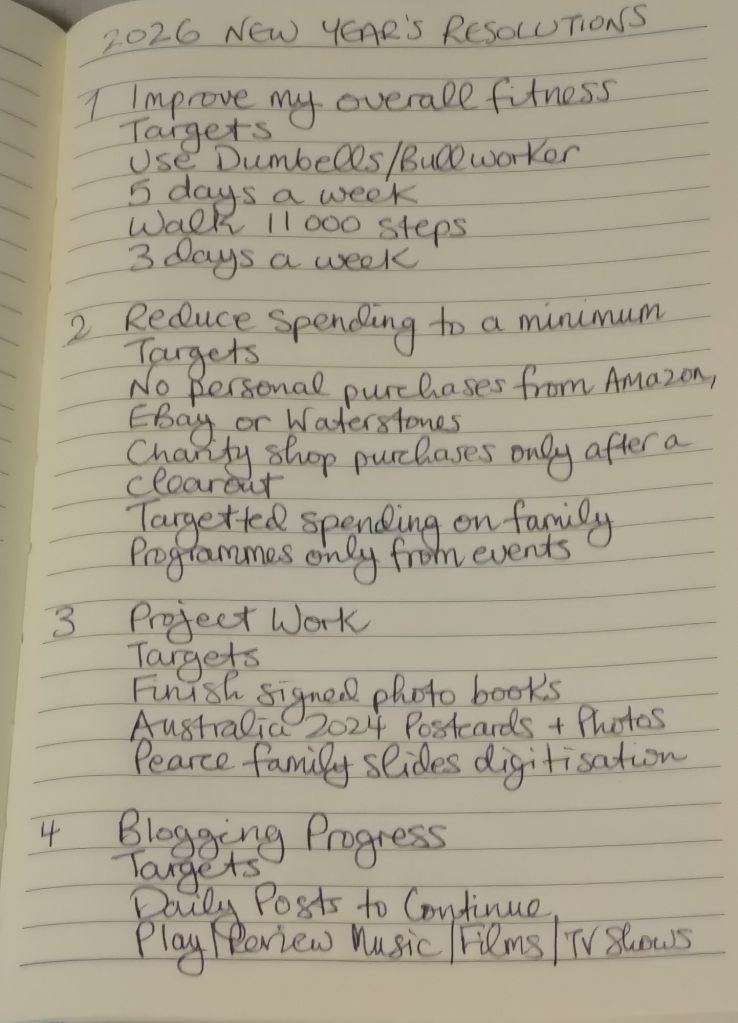 2026 NEW YEAR'S RESOLUTIONS
1 Improve my overall fitness
Targets
Use Dumbells/Bullworker
5 days a week
Walk 11 000 steps
3 days a week
2 Reduce spending to a minimum
Targets
No personal purchases from Amazon,
EBay or Waterstones
Charity shop purchases only after a
clearout
Targetted spending on family
Programmes only from events
3 Project Work
Targets
Finish signed photo books
Australia 2024 Postcards + Photos
Pearce family slides digitisation
4 Blogging Progress
Targets
Daily Posts to Continue
Play|Review Music|Films|TV Shows